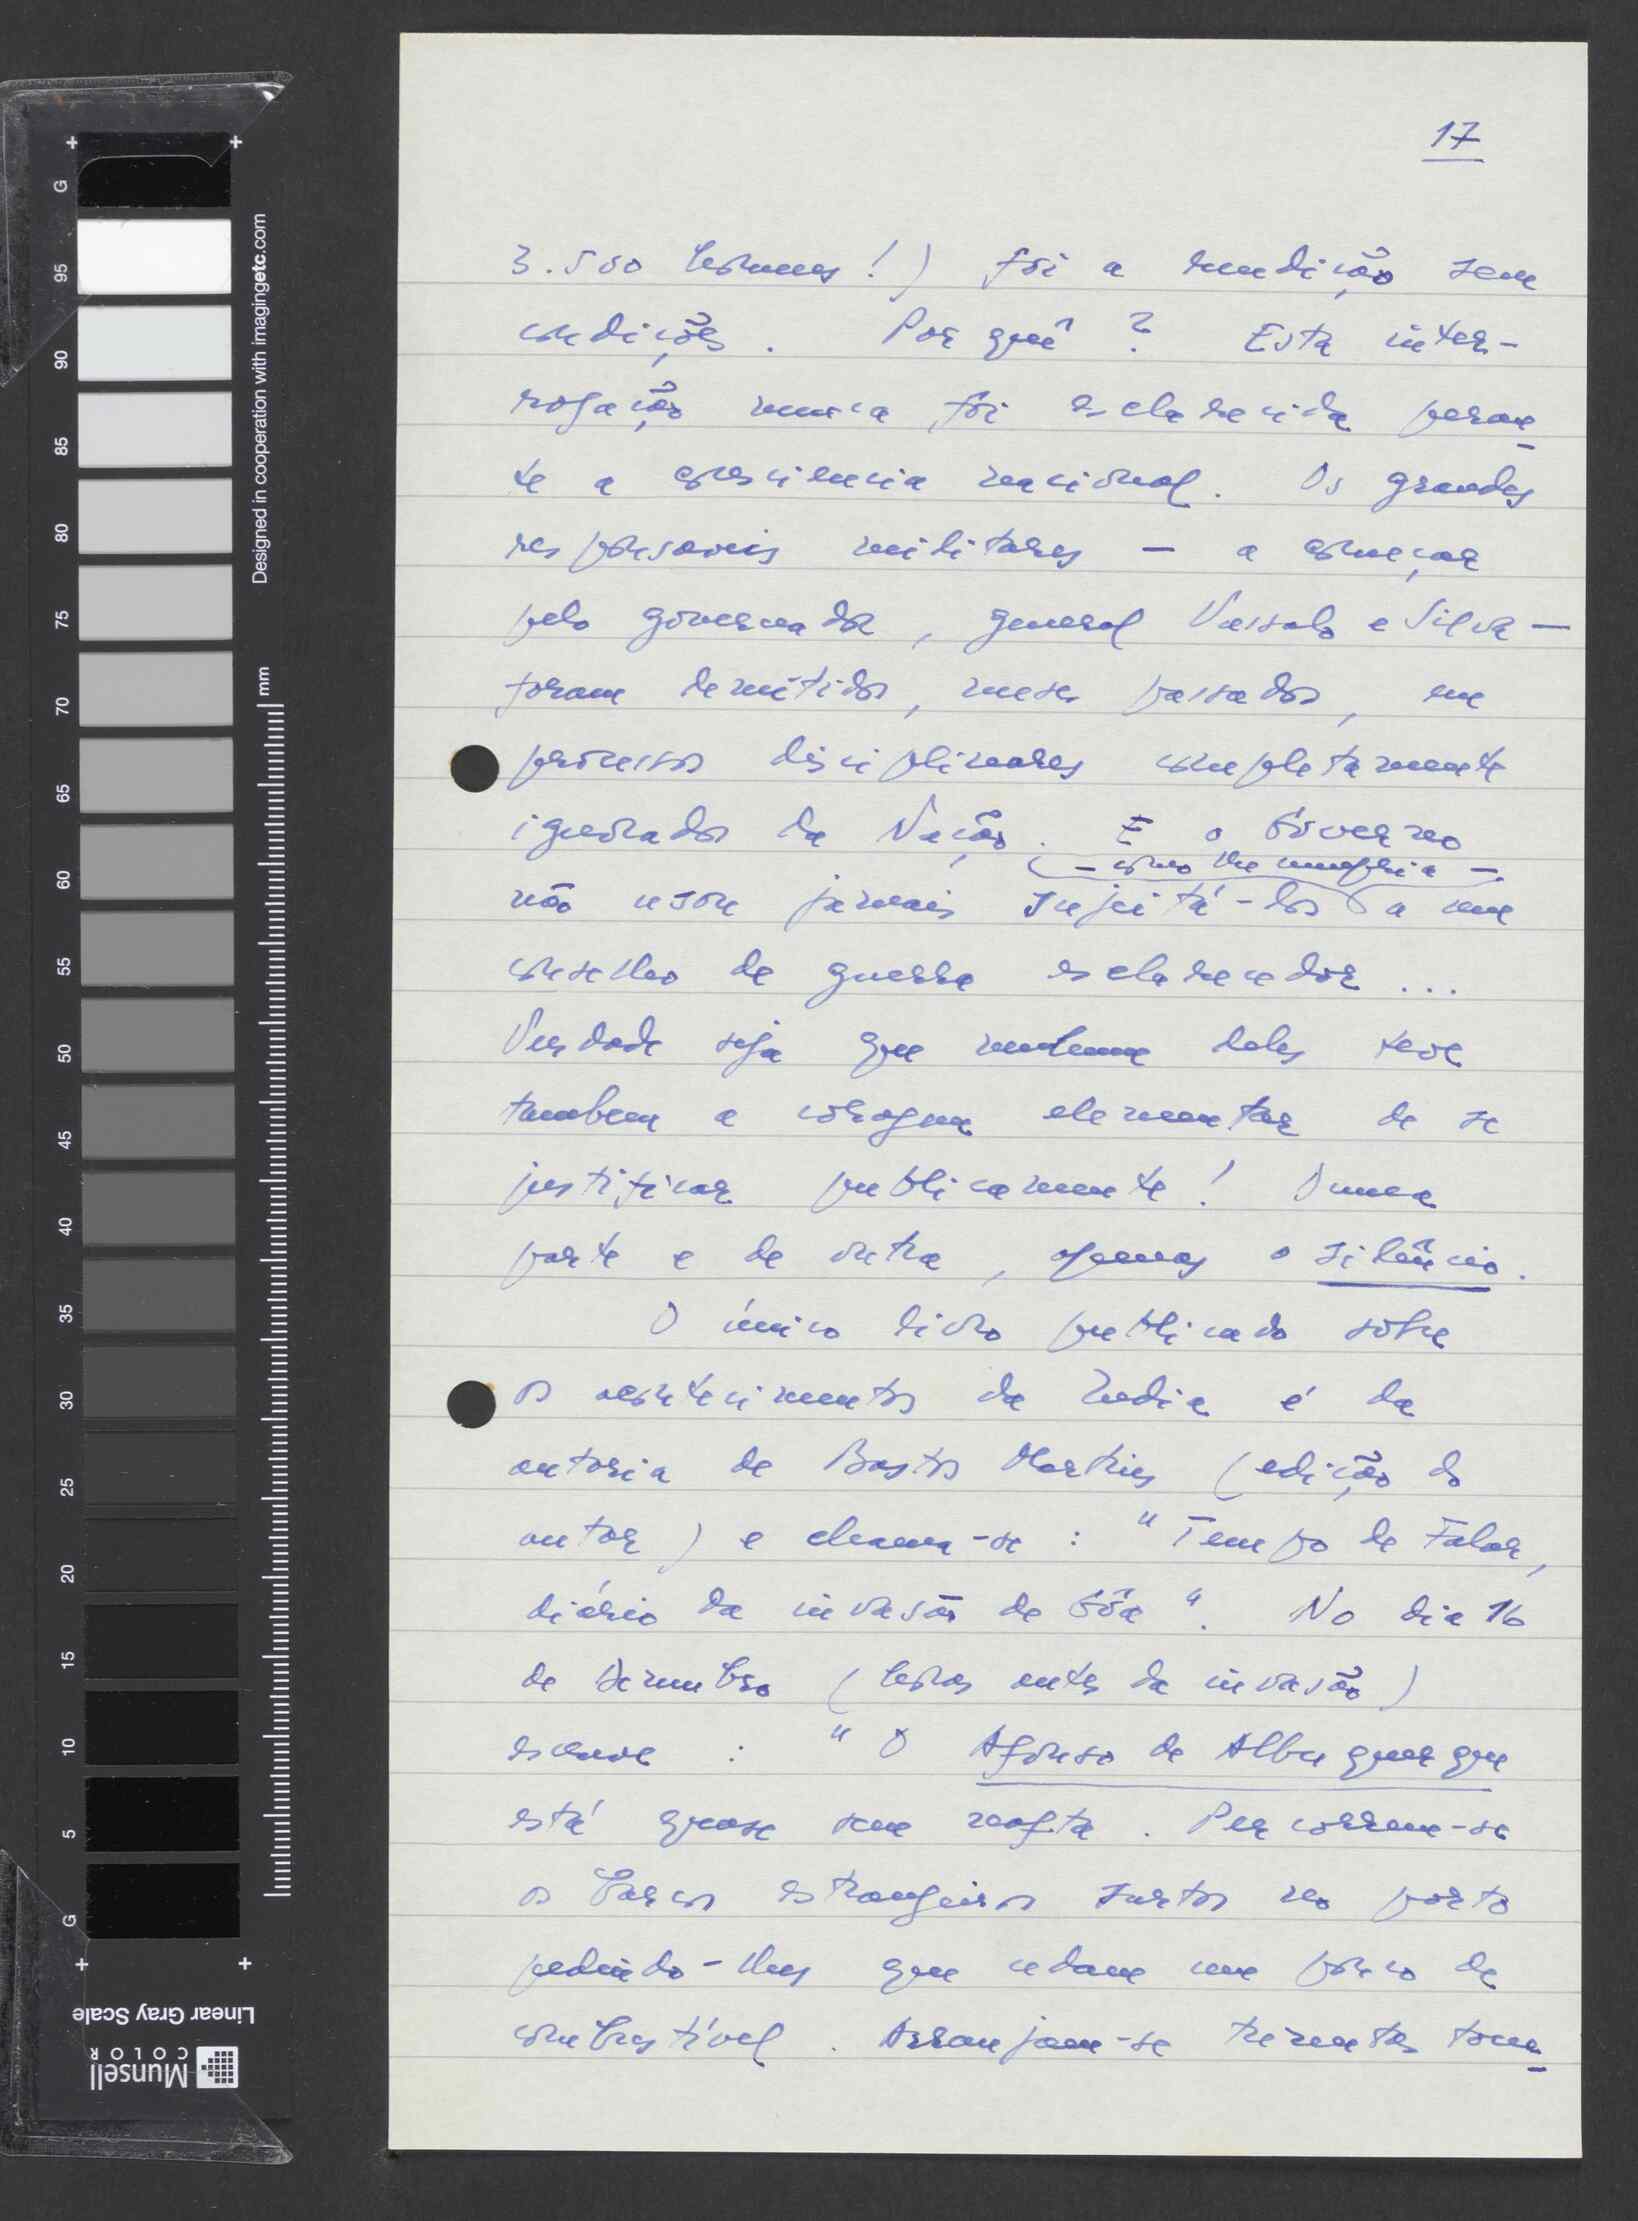 17
3.500 homens!) foi a rendição sem
condições. Por quê? Esta inter-
rogação nunca foi esclarecida peran-
te a consciencia nacional. Os grandes
responsaveis militares — a começar
pelo governador, general Vassalo e Silva —
foram demitidos, meses passados, em
processos disciplinares completamente
ignorados da Nação. E o Govêrno
— como lhe cumpria —
não usou jamais sujeitá-los a um
conselho de guerra esclarecedor...
Verdade seja que nenhum deles teve
tambem a coragem elementar de se
justificar publicamente! Duma
parte e de outra, apenas o silêncio.
O único livro publicado sobre
os acontecimentos da India é da
autoria de Bastos Martins (edição do
autor) e chama-se: "Tempo de Falar,
diário da invasão de Gôa". No dia 16
de Dezembro (horas antes da invasão)
escreve: "O Afonso de Albuquerque
está quase sem nafta. Percorrem-se
os barcos estrangeiros surtos no porto
pedindo-lhes que cedam um pouco de
combustível. Arranjam-se trezentas tone-
Designed in cooperation with imagingetc.com
mm
G
95
90
85
80
75
70
65
60
55
50
45
40
35
30
25
20
15
10
5
G
Linear Gray Scale
Munsell
COLOR